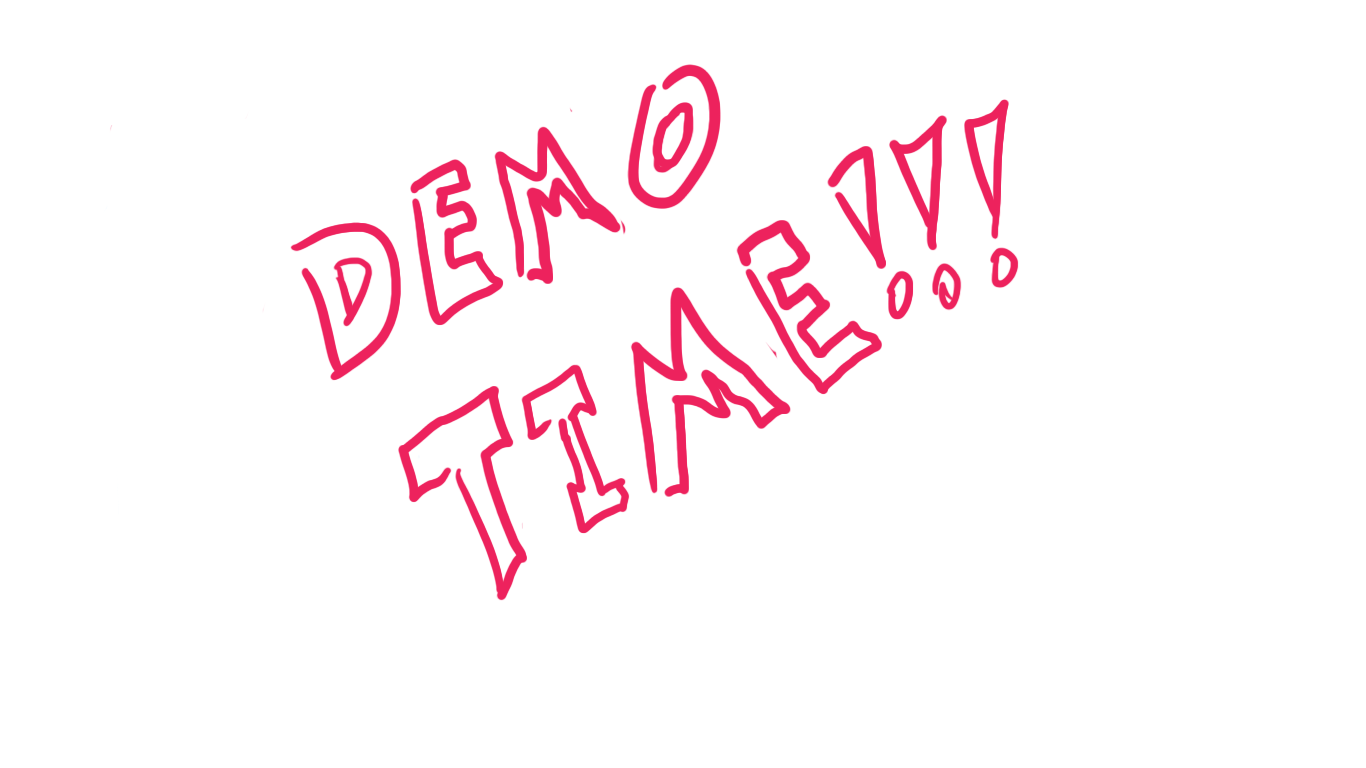 DEMO
TIME!!!